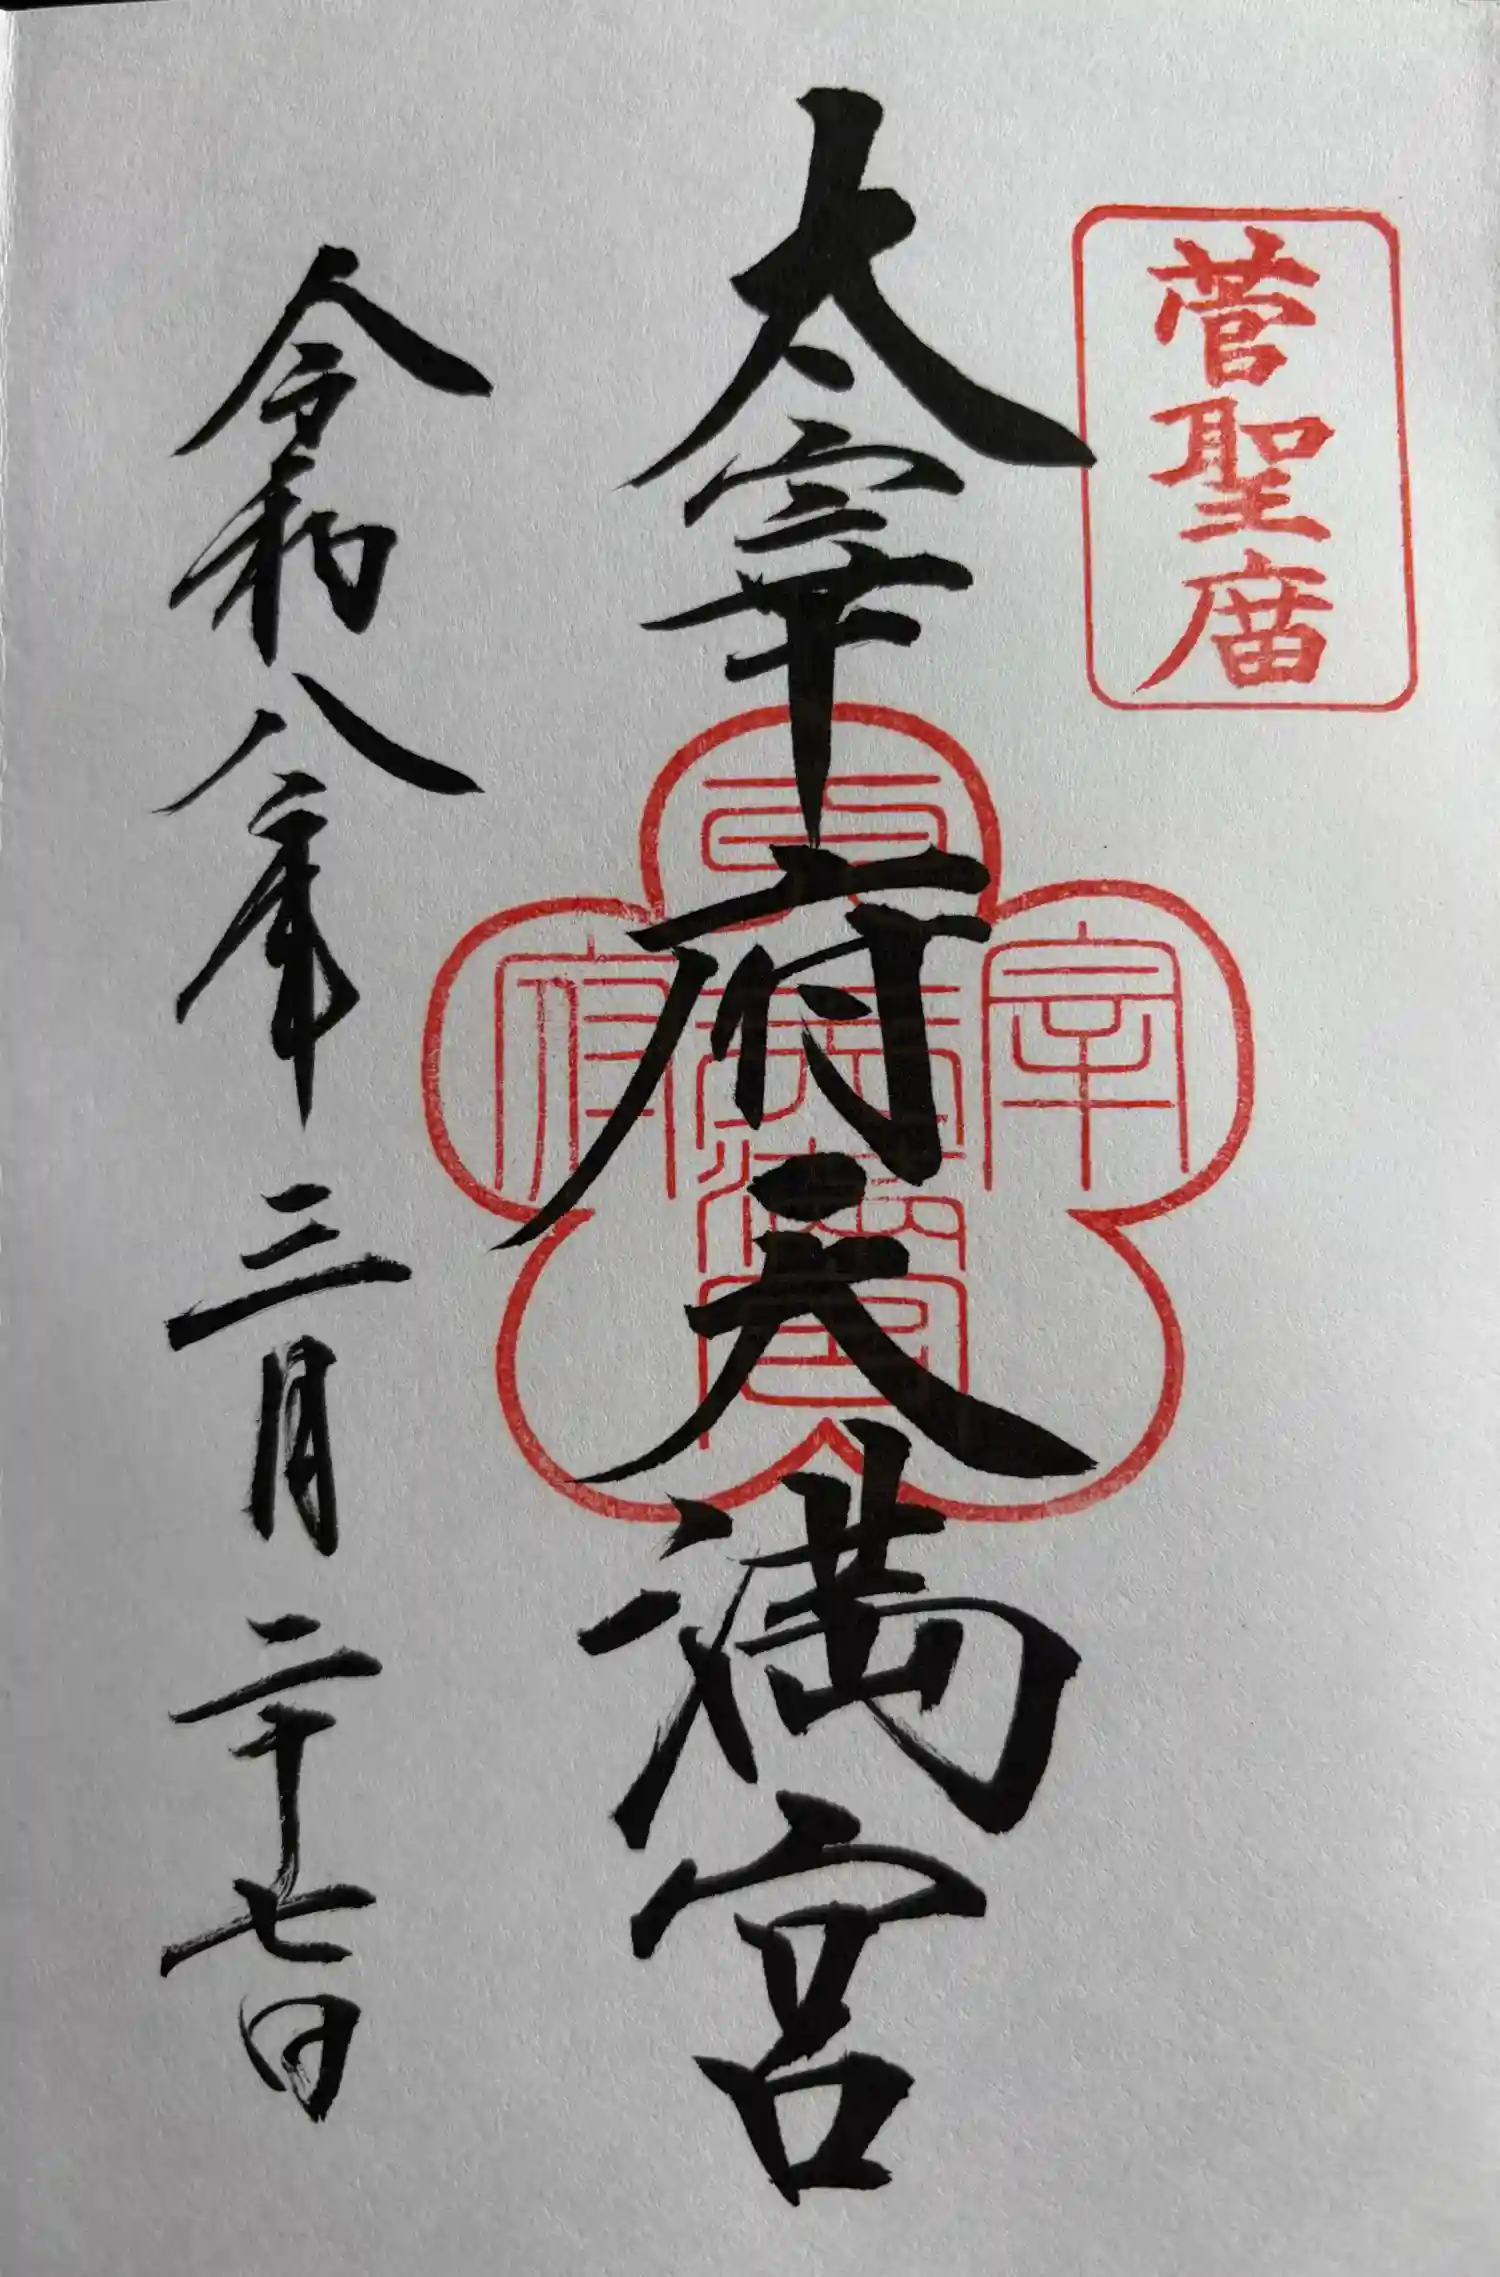 菅聖庿
太宰府天満宮
太宰府天満宮
令和八年三月二十七日